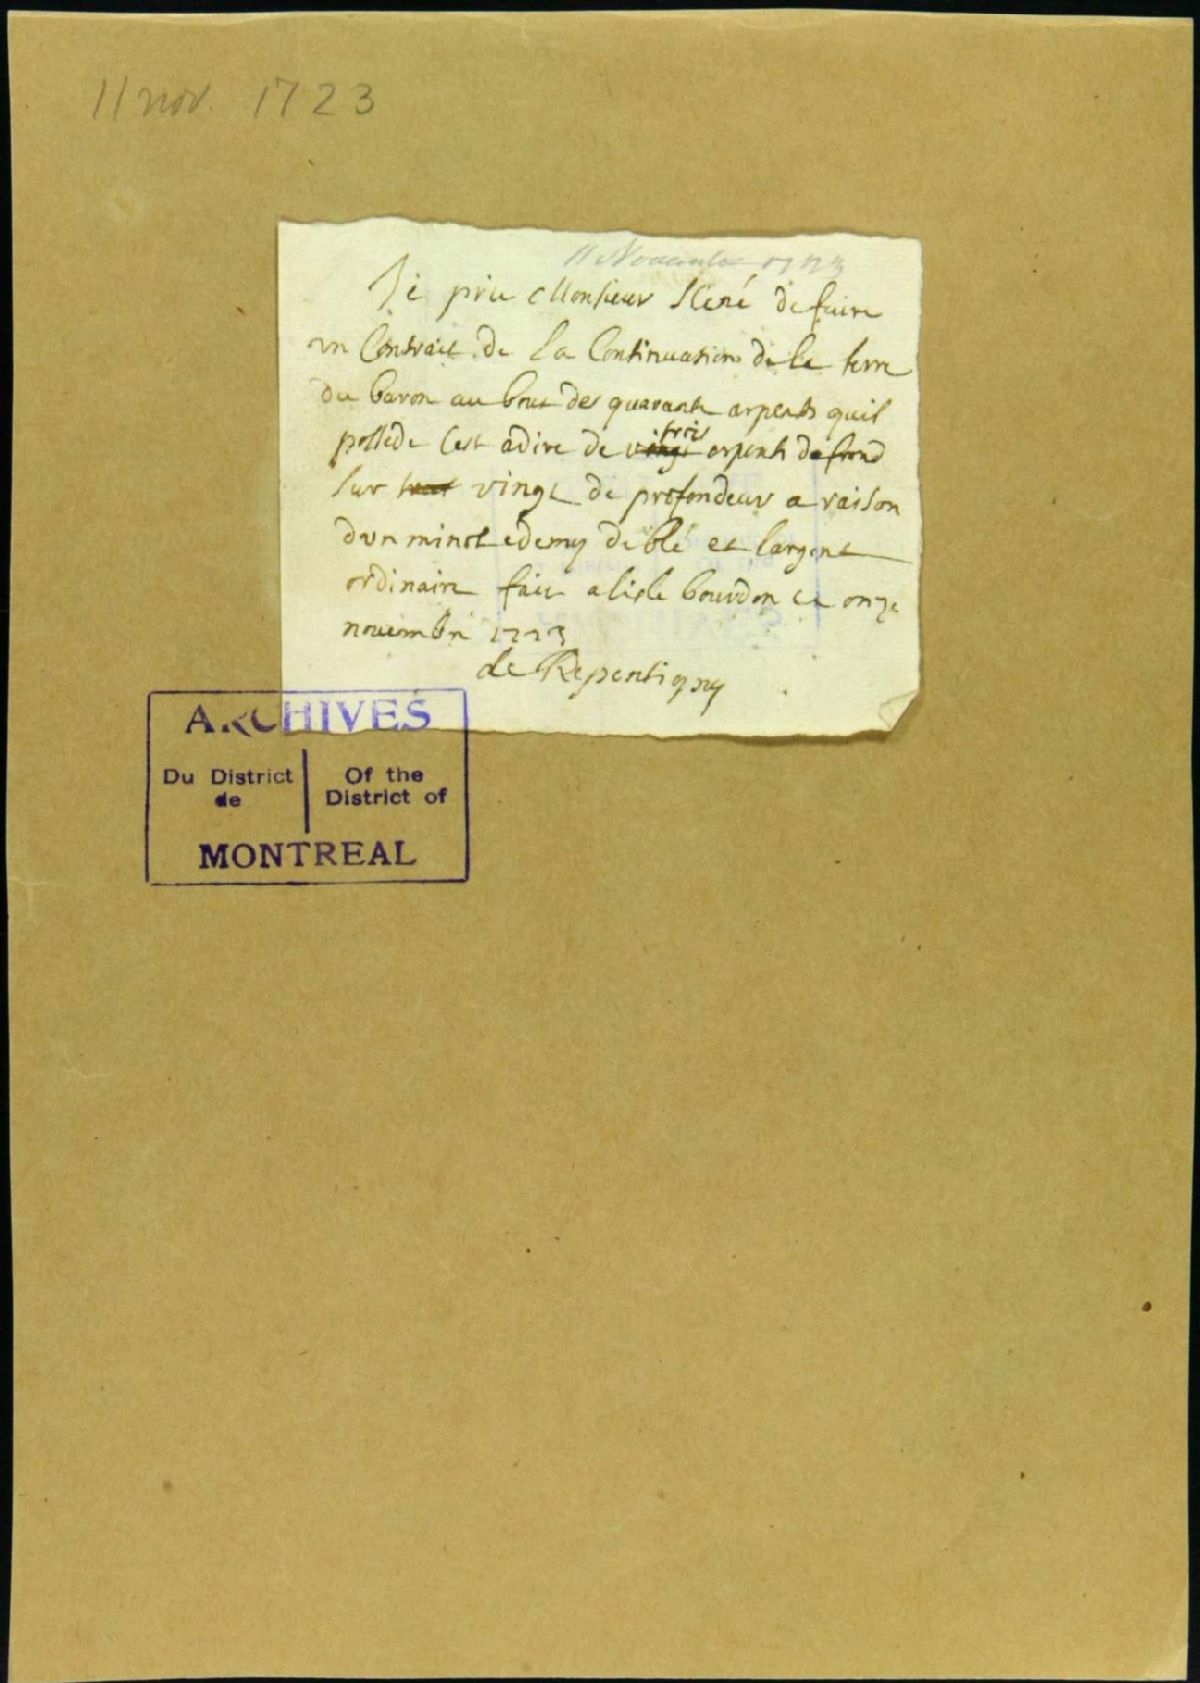 11 nov. 1723
11 Novembre 1723
Je prie Monsieur René de faire
un Contrait de la Continuation de la terre
du baron au bout des quarante arpents quil
possede Cest adire de vingt trois arpents de frond
sur vingt de profondeur a raison
dun minot edemy de blé et largent
ordinaire fait alisle bourdon ce onze
novembre 1723
de Repentigny
ARCHIVES
Du District de
Of the District of
MONTREAL